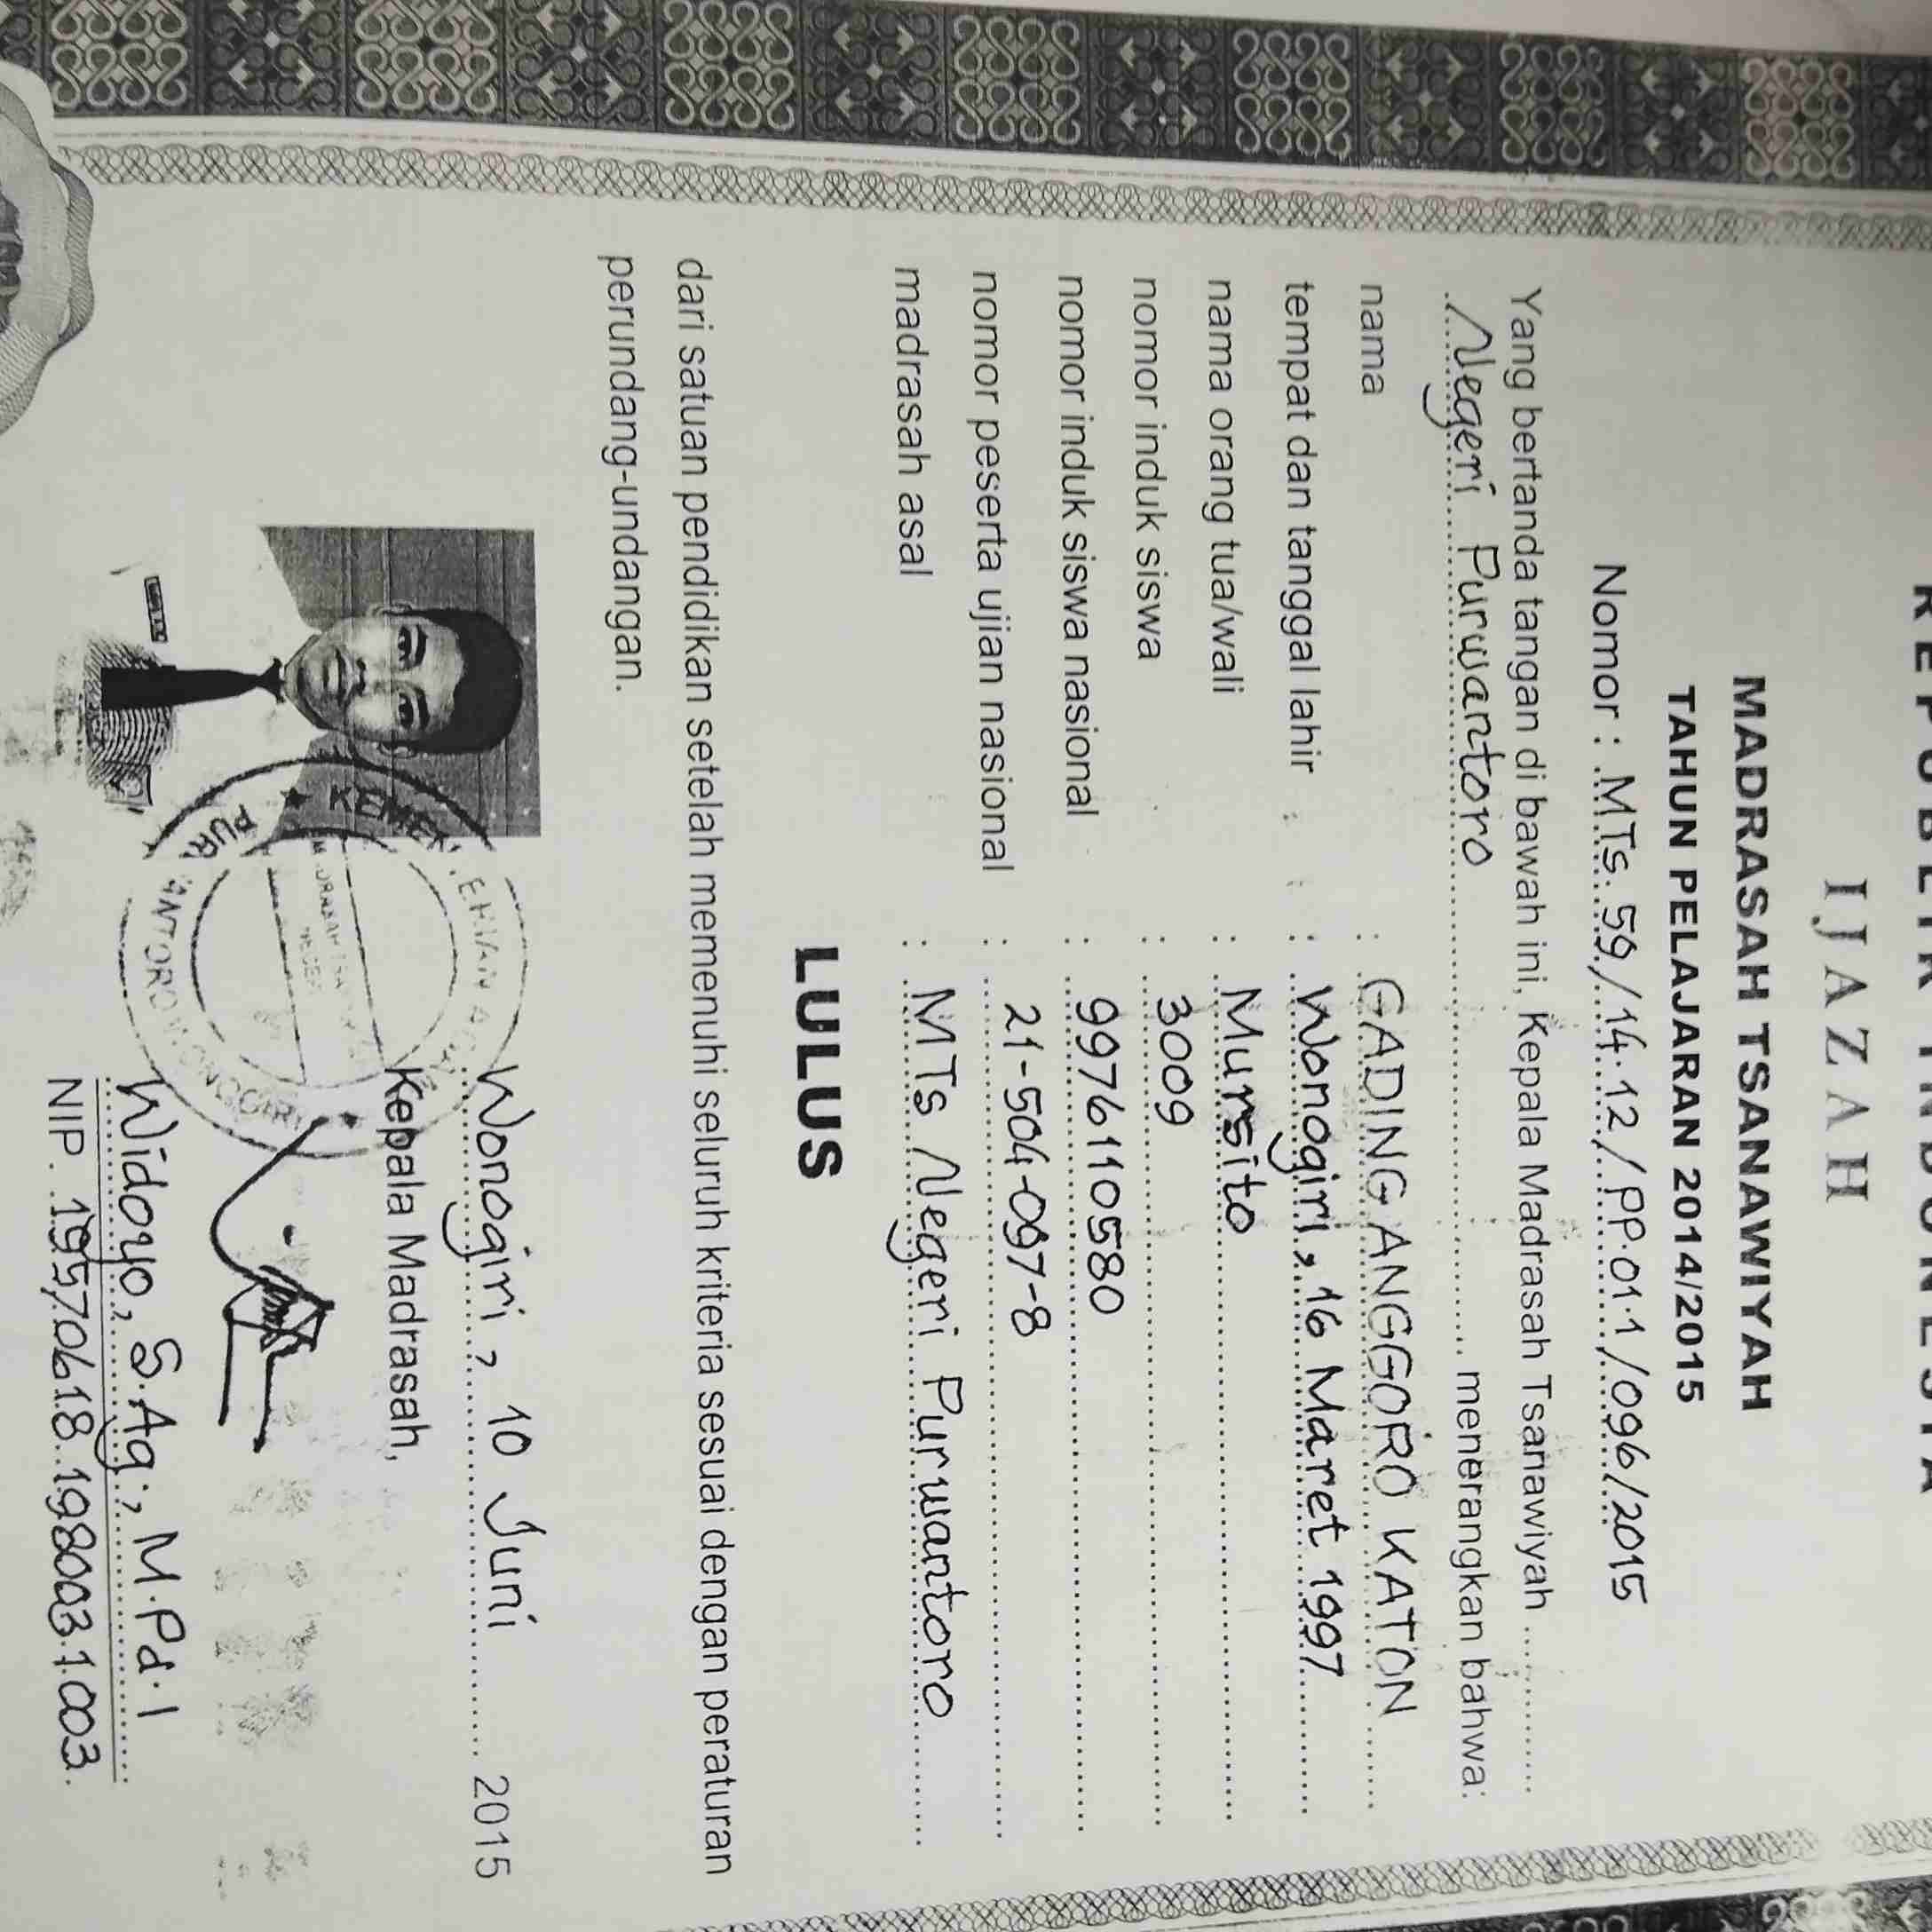 REPUBLIK INDONESIA
IJAZAH
MADRASAH TSANAWIYAH
TAHUN PELAJARAN 2014/2015
Nomor : MTs. 59 / 14.12 / PP.01.1 / 096 / 2015
Yang bertanda tangan di bawah ini, Kepala Madrasah Tsanawiyah
Negeri Purwantoro menerangkan bahwa:
nama : GADING ANGGORO KATON
tempat dan tanggal lahir : Wonogiri, 16 Maret 1997
nama orang tua/wali : Mursito
nomor induk siswa : 3009
nomor induk siswa nasional : 9976110580
nomor peserta ujian nasional : 21-504-097-8
madrasah asal : MTs Negeri Purwantoro
LULUS
dari satuan pendidikan setelah memenuhi seluruh kriteria sesuai dengan peraturan
perundang-undangan.
Wonogiri, 10 Juni 2015
Kepala Madrasah,
Widoyo, S.Ag., M.Pd.I
NIP. 19570618 198003 1 003.